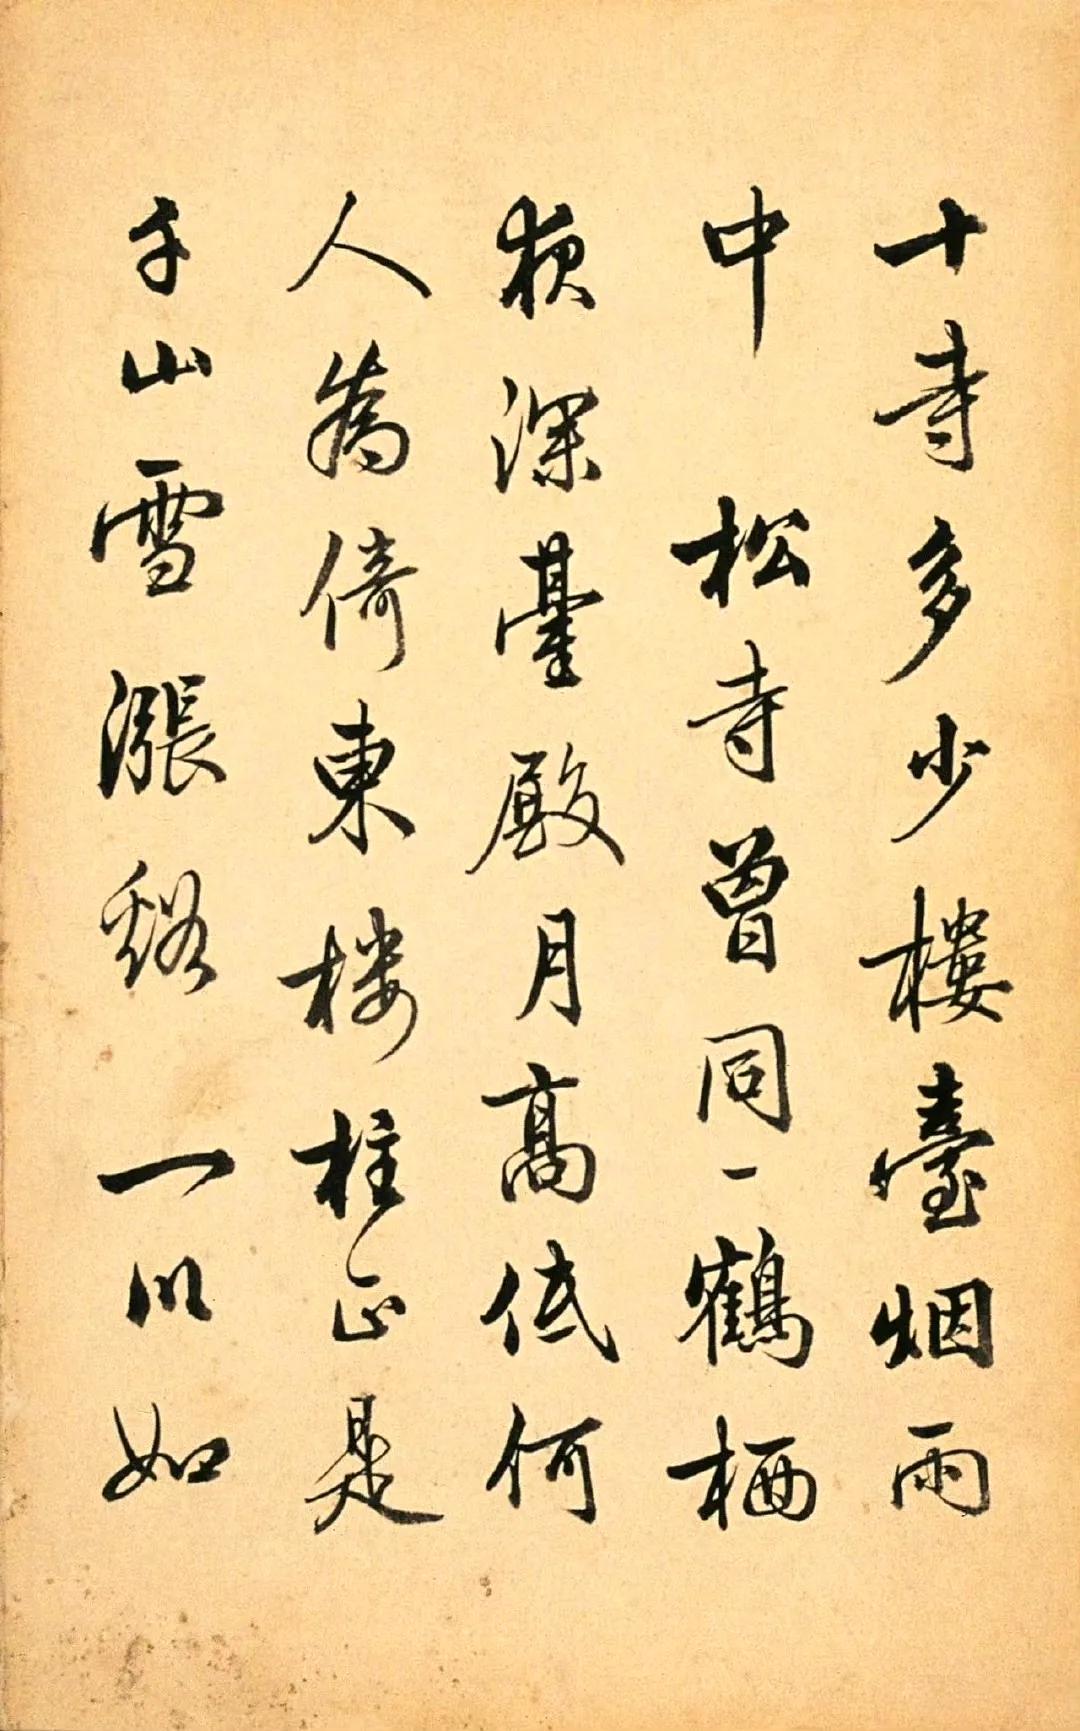 十寺多少樓臺烟雨
中 松寺曾同一鶴栖
夜深臺殿月高低何
人為倚東樓柱正是
千山雪漲谿 一川如